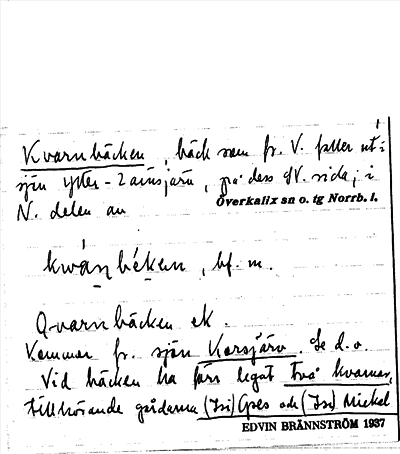 Kvarnbäcken, bäck som fr. V. faller ut i
sjön Ytter-Lainsjärv, på dess SV. sida, i
N. delen av
Överkalix sn o. tg Norrb. l.
kwáṇbéken, bf. m.
Qvarnbäcken ek.
Kommer fr. sjön Korsjärv. Se d. o.
Vid bäcken ha förr legat två kvarnar,
tillhörande gårdarna (Isi) och (Isi) Mickel
EDVIN BRÄNNSTRÖM 1937